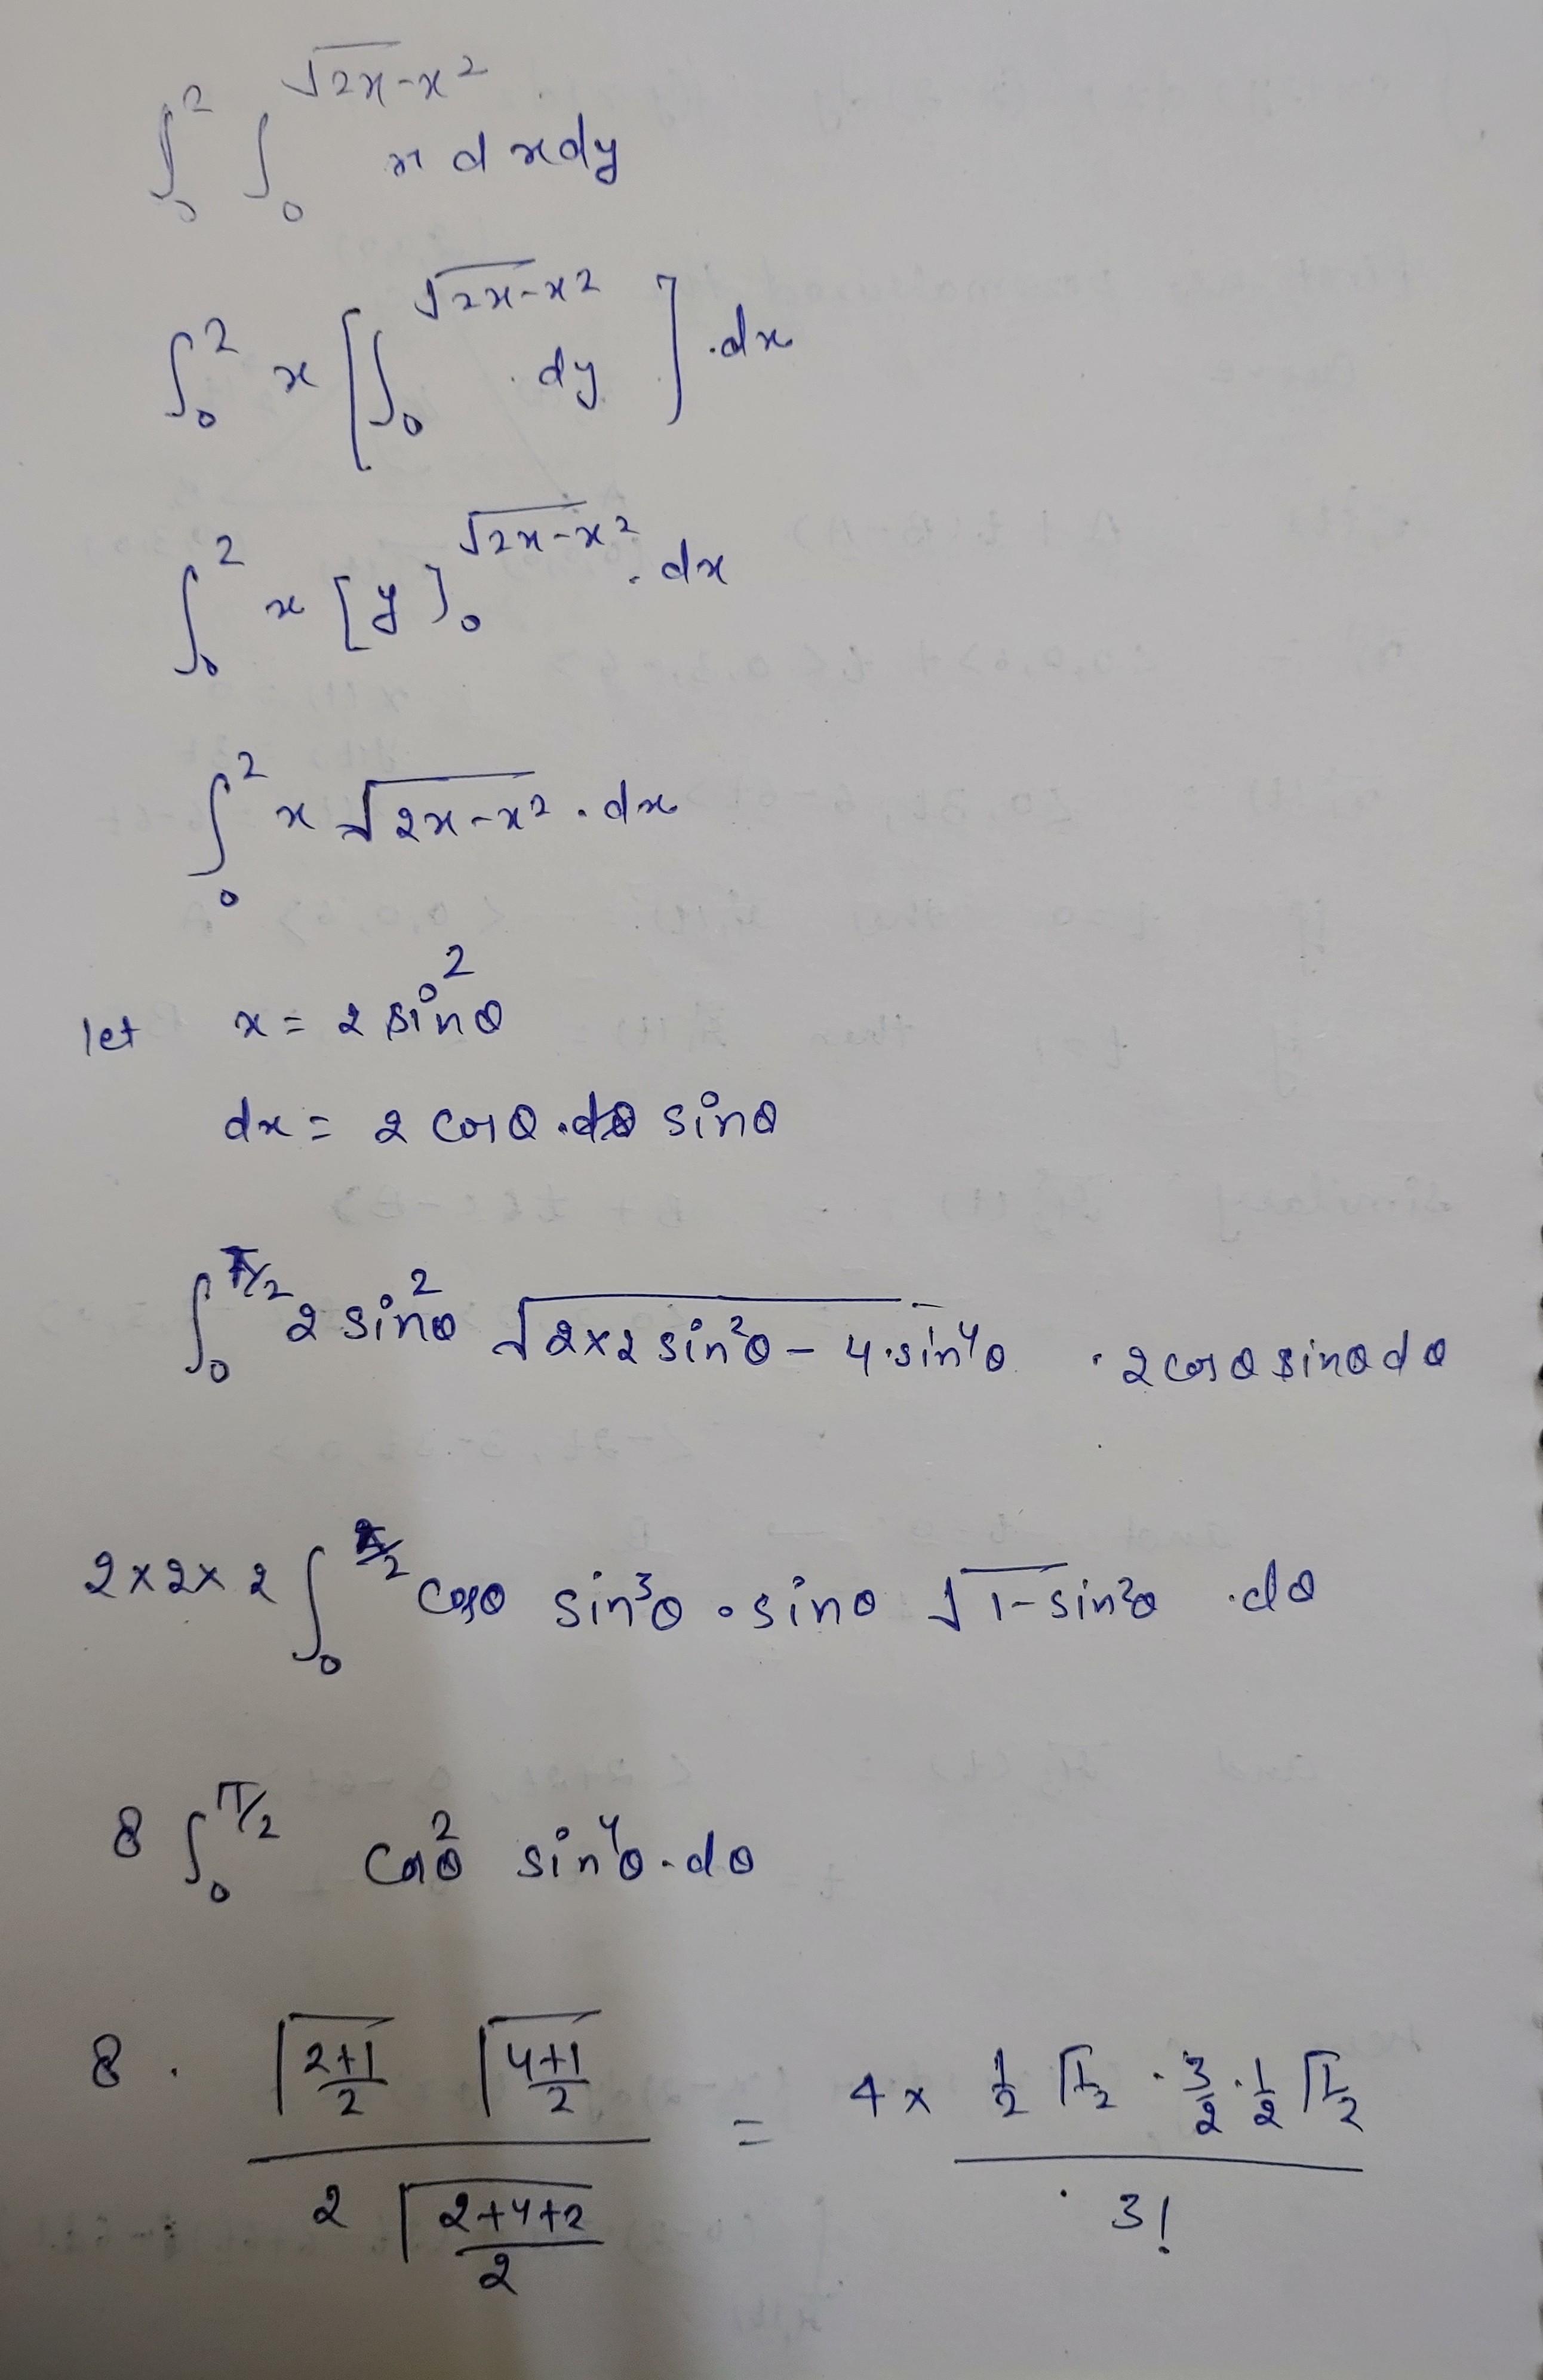 ∫₀² ∫₀^√(2x-x²) x dxdy
∫₀² x [∫₀^√(2x-x²) dy] .dx
∫₀² x [y]₀^√(2x-x²) .dx
∫₀² x √(2x-x²) .dx
let x = 2 sin²θ
dx = 2 cosθ.dθ sinθ
∫₀^π/2 2 sin²θ √(2×2 sin²θ - 4.sin⁴θ) .2cosθ sinθ dθ
2×2×2 ∫₀^π/2 cosθ sin³θ . sinθ √(1-sin²θ) .dθ
8 ∫₀^π/2 cos²θ sin⁴θ.dθ
8 . (Γ((2+1)/2) Γ((4+1)/2)) / (2 Γ((2+4+2)/2)) = 4 × (1/2 Γ(1/2) . 3/2 . 1/2 Γ(1/2)) / 3!